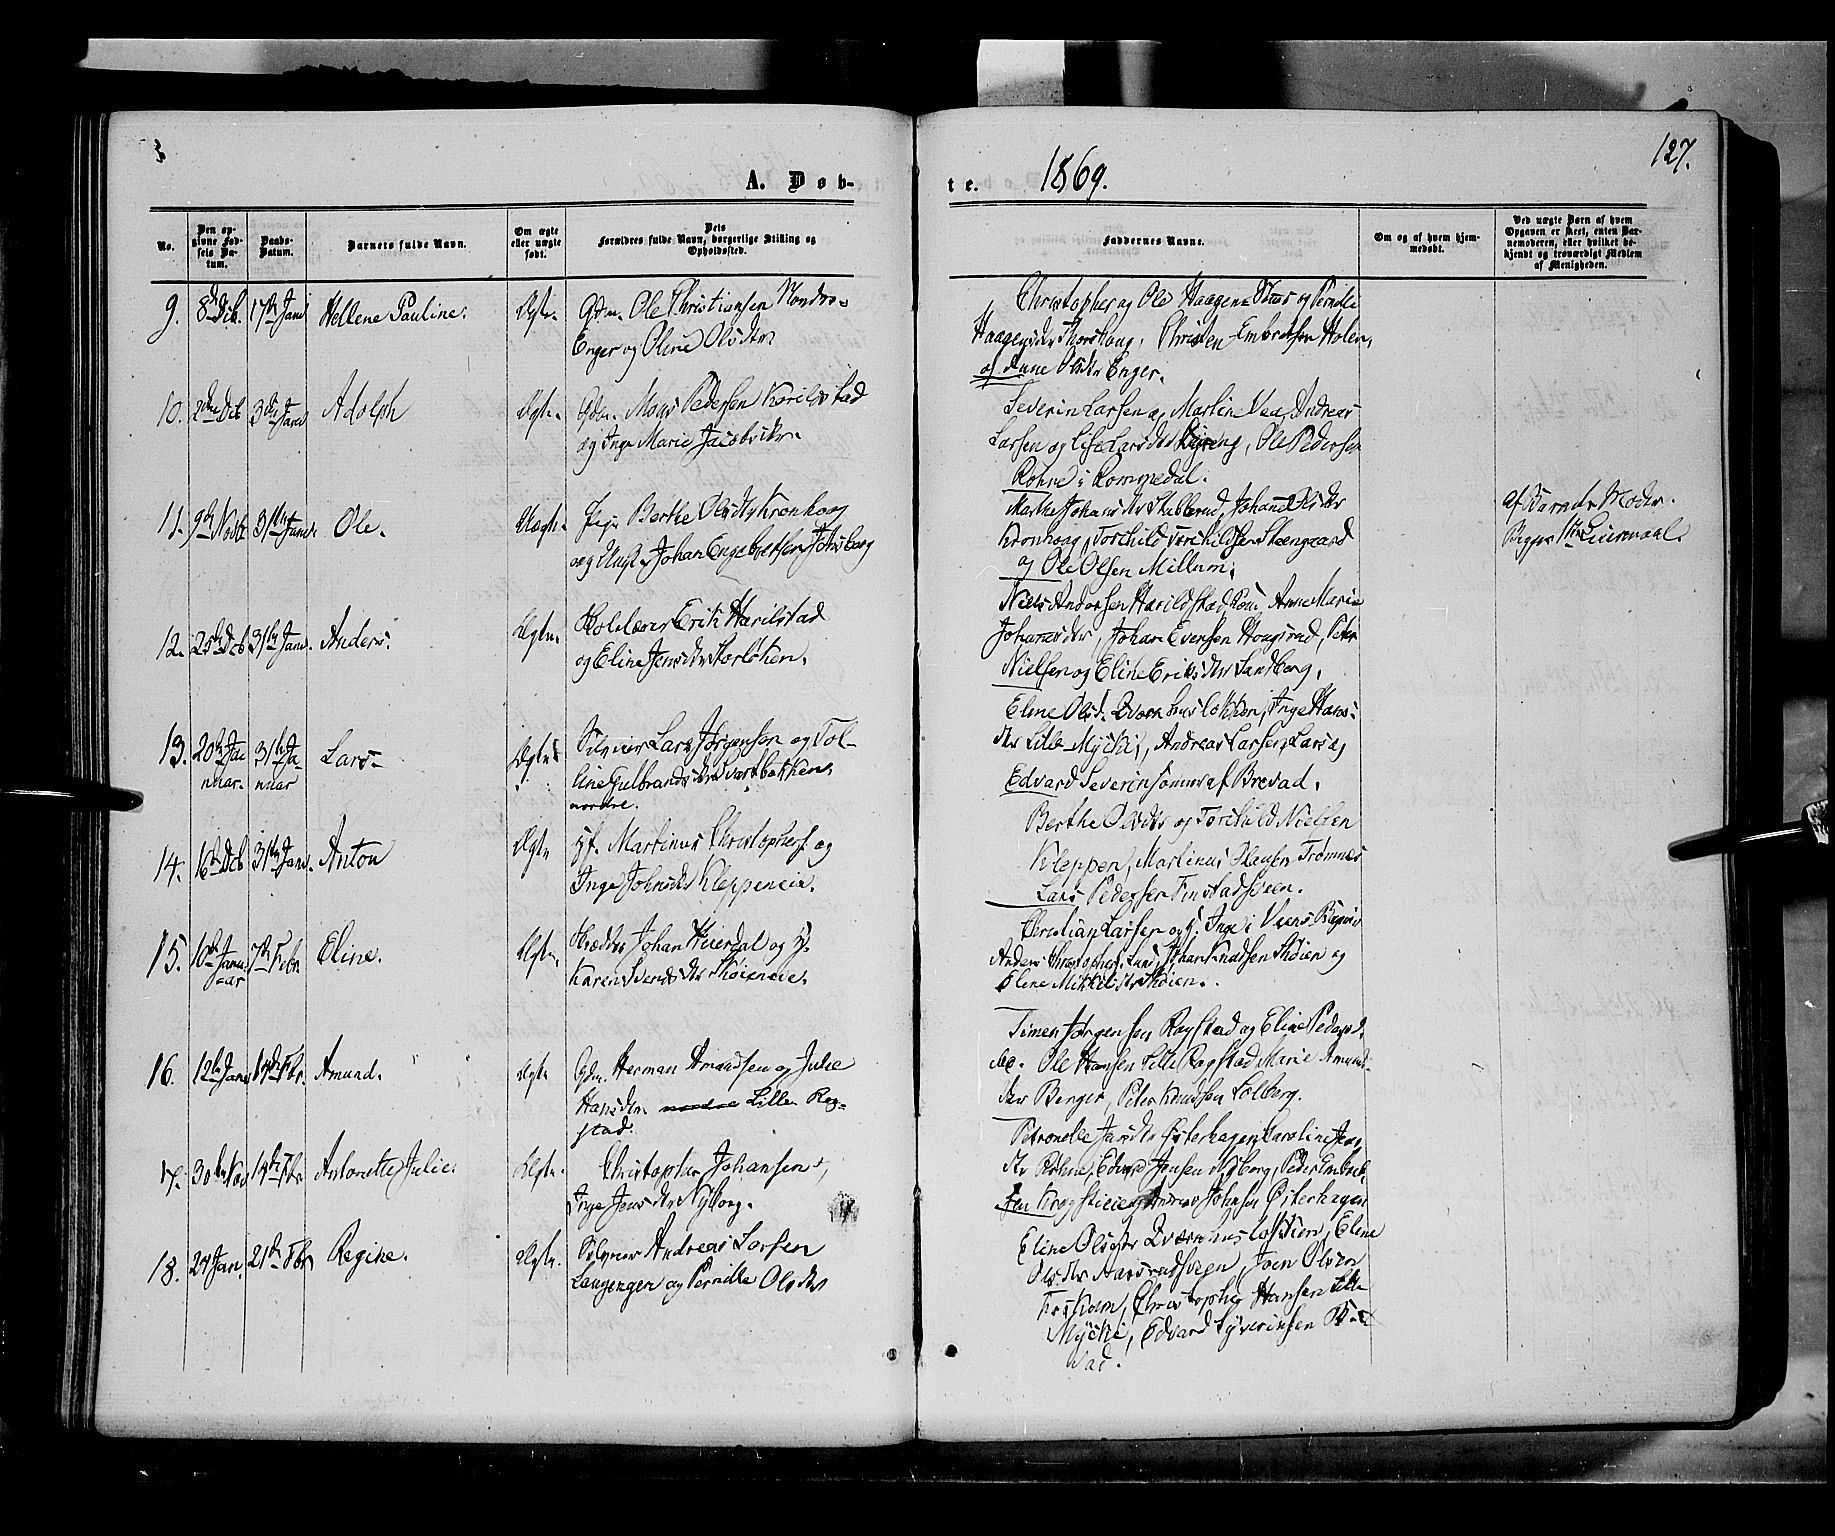 127.
A. Døb-
te.
1869.
No.
Den op-
givne Fød-
sels Da-
tum.
Daabs-
Datum.
Barnets fulde Navn.
Om ægte
eller uægte
født.
Dets
Forældres fulde Navn, borgerlige Stilling og
Opholdssted.
Faddernes Navne.
Om og af hvem hjem-
medøbt.
Ved uægte Børn af hvem
Opgaven er skeet, enten Bar-
nemoderen, eller hvilket be-
kjendt og troværdigt Medlem
af Menigheden.
9. 8de Dcb. 17de Janr Hellene Pauline. Ægte. Gdm. Ole Christiansen Nordre-
Enger og Oline Olsdtr
Christopher og Ole Haagens og Pernille
Haagensdtr Christen Embretsen Holen,
og Anne Olsdtr Enger.
10. 2den Dcb 3die Janr Adolph Ægte. Gdm. Mons Pedersen Harildstad
og Inge Marie Jacobsdtr.
Severin Larsen og Martin Vea Andreas
Larsen og Lise Larsdtr Ole Pedersen
Rohne i Rommedal.
11. 9de Novbr 31te Janr. Ole. Uægte. Pige Berthe Olsdtr Kronhaog
og Ungk. Johan Engebretsen Johsberg
Marthe Johansdtr Stubberud, Johanne Olsdtr
Kronhaog, Torchild Torchildsen Skeengaard
og Ole Olsen Millum.
af Barnets Moder.
12. 25de Dcb 31te Janr. Anders. Ægte. Skolelærer Erik Harilstad
og Eline Jensdtr Storløken.
Niels Andersen Harildstad Anne Marie
Johansdtr, Johan Evensen Haagsrud, Peter
Nielsen og Eline Eriksdtr Sandberg.
13. 20de Ja-
nuar. 31te Ja-
nuar Lars Ægte. Selveier Lars Jørgensen og Tol-
line Gulbrandsdtr Svartbekken
nordre.
Eline Olsd. Kværnhusløkken, Inge Hans-
dtr Lille Mycki, Andreas Larsen, Lars og
Edvard Severinsønner af Brevad.
14. 16de Dcb 31te Janr. Anton Ægte Hf. Martinus Christophers. og
Inge Johnsdtr Kleppeneie.
Berthe Olsdtr og Torchild Nielsen
Kleppen, Martinus Olausen Trømnes
Lars Pedersen Finstadsveen.
15. 10de Janu-
ar 7de Febr Eline. Ægte. Skrædder Johan Heierdal og H.
Karen Svendsdtr Skøieneie.
Christian Larsen og H. Inge i Veens
Anders Christophers. Lund, Johan Knudsen Skøien og
Eline Mikkelsdtr Skøien.
16. 12te Janr 14de Fbr. Amund. Ægte Gdm. Herman Amundsen og Julie
Hansdtr. nordre Lille Rog-
stad.
Simen Jørgensen Rogstad og Eline Pedersd.
Ole Hansen Lille Rogstad, Marie Amunds-
dtr Berger, Peter Knudsen Solberg.
17. 30te Nov 14de Fbr Antonette Julie. Ægte. Christopher Johansen,
Inge Jensdtr Nyborg.
Petronelle Jansdtr Østerhagen, Karoline Jens-
dtr Rohne, Edvard Jensen Nyborg, Peder Embret-
sen Krogstieie og Andreas Johnsen Østerhagen
18. 24 Jan. 21de Fbr Regine. Ægte. Selveier Andreas Larsen
Langengen og Pernille Olsdtr
Eline Olsdtr Kværnhusløkken, Eline
Olsdtr Aasrudsvegn, Joen Olsen
Foskum, Christopher Hansen Lille
Mycki, Edvard Syverinsen Bre-
vad.